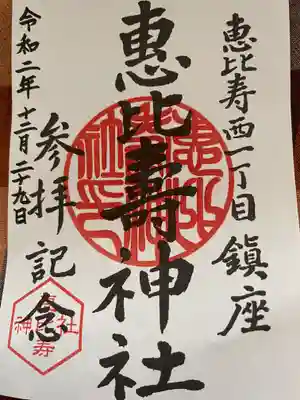 恵比寿西一丁目鎮座
惠比壽神社
参拝記念
令和二年十二月二十九日